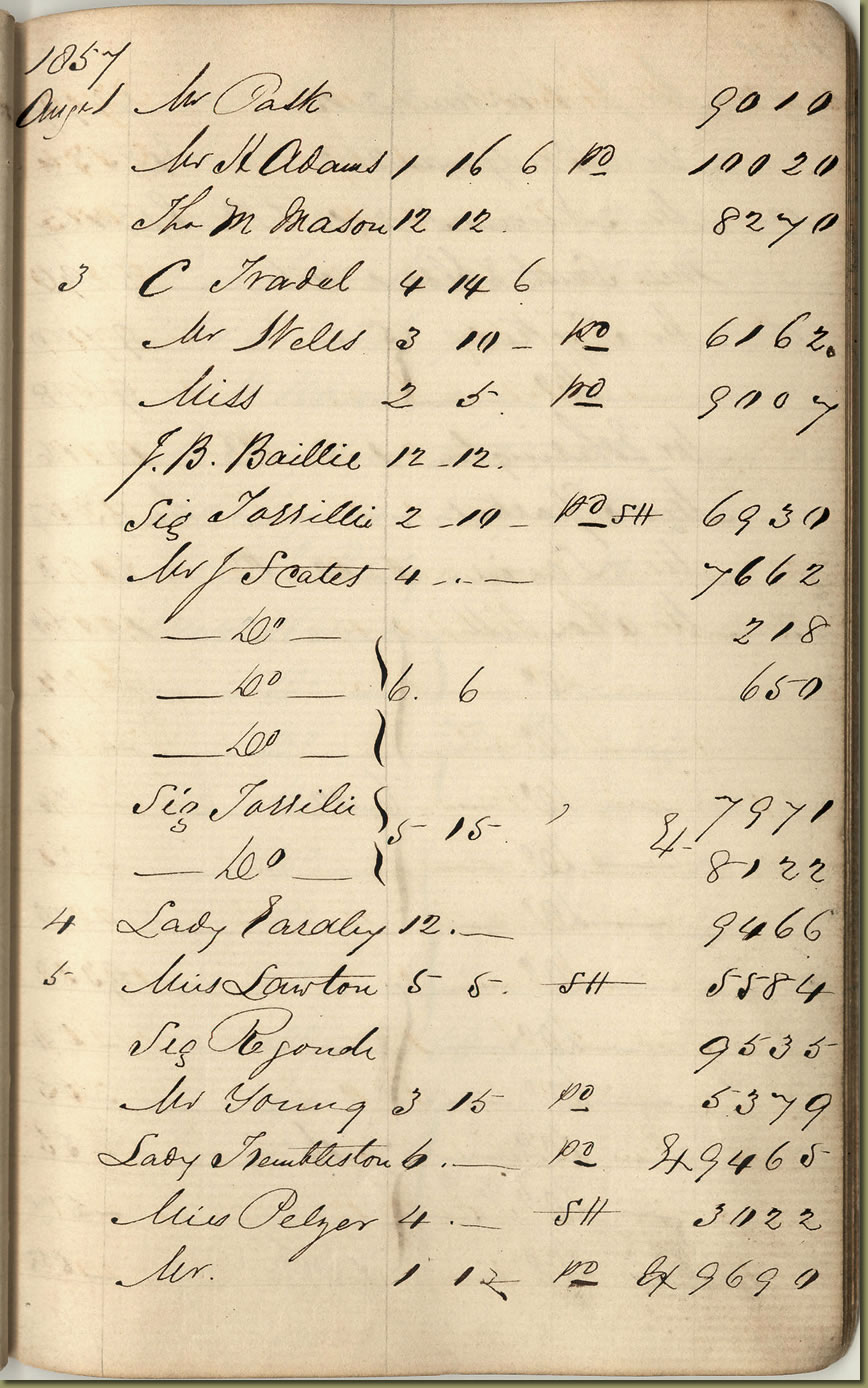 1857
Augst Mr Pask 9010
Mr H Adams 1 16 6 pd 10020
Tho M Mason 12 12 . 8270
3 C Tradel 4 14 6
Mr Wells 3 10 - pd 6162
Miss 2 5 . pd 9007
J. B. Baillie 12 - 12 .
Sig Tossillie 2 - 10 - pd SH 6930
Mr J Scates 4 - . - 7662
— Do — 218
— Do — 6 . 6 650
— Do —
Sig Tossilie 5 15 . Ex 7971
— Do — 8122
4 Lady Eardley 12 . — 9466
5 Miss Lawton 5 5 . SH 5584
Sig Regondi 9535
Mr Young 3 15 pd 5379
Lady Trembleston 6 . — pd Ex 9465
Miss Pelzer 4 . — SH 3022
Mr. 1 12 pd Ex 9690